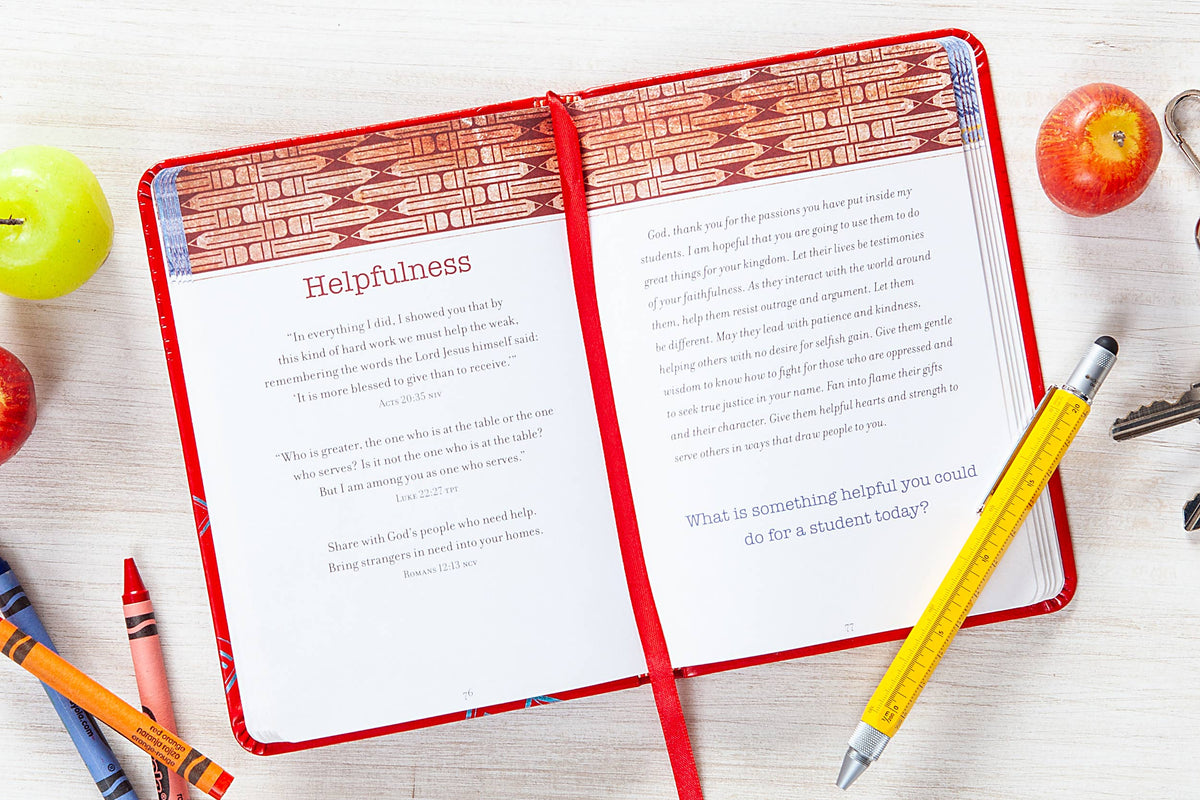 Helpfulness
“In everything I did, I showed you that by
this kind of hard work we must help the weak,
remembering the words the Lord Jesus himself said:
‘It is more blessed to give than to receive.’”
Acts 20:35 NIV
“Who is greater, the one who is at the table or the one
who serves? Is it not the one who is at the table?
But I am among you as one who serves.”
Luke 22:27 TPT
Share with God’s people who need help.
Bring strangers in need into your homes.
Romans 12:13 NCV
76
God, thank you for the passions you have put inside my
students. I am hopeful that you are going to use them to do
great things for your kingdom. Let their lives be testimonies
of your faithfulness. As they interact with the world around
them, help them resist outrage and argument. Let them
be different. May they lead with patience and kindness,
helping others with no desire for selfish gain. Give them gentle
wisdom to know how to fight for those who are oppressed and
to seek true justice in your name. Fan into flame their gifts
and their character. Give them helpful hearts and strength to
serve others in ways that draw people to you.
What is something helpful you could
do for a student today?
77
red orange
naranja rojizo
orange-rouge
yola.com